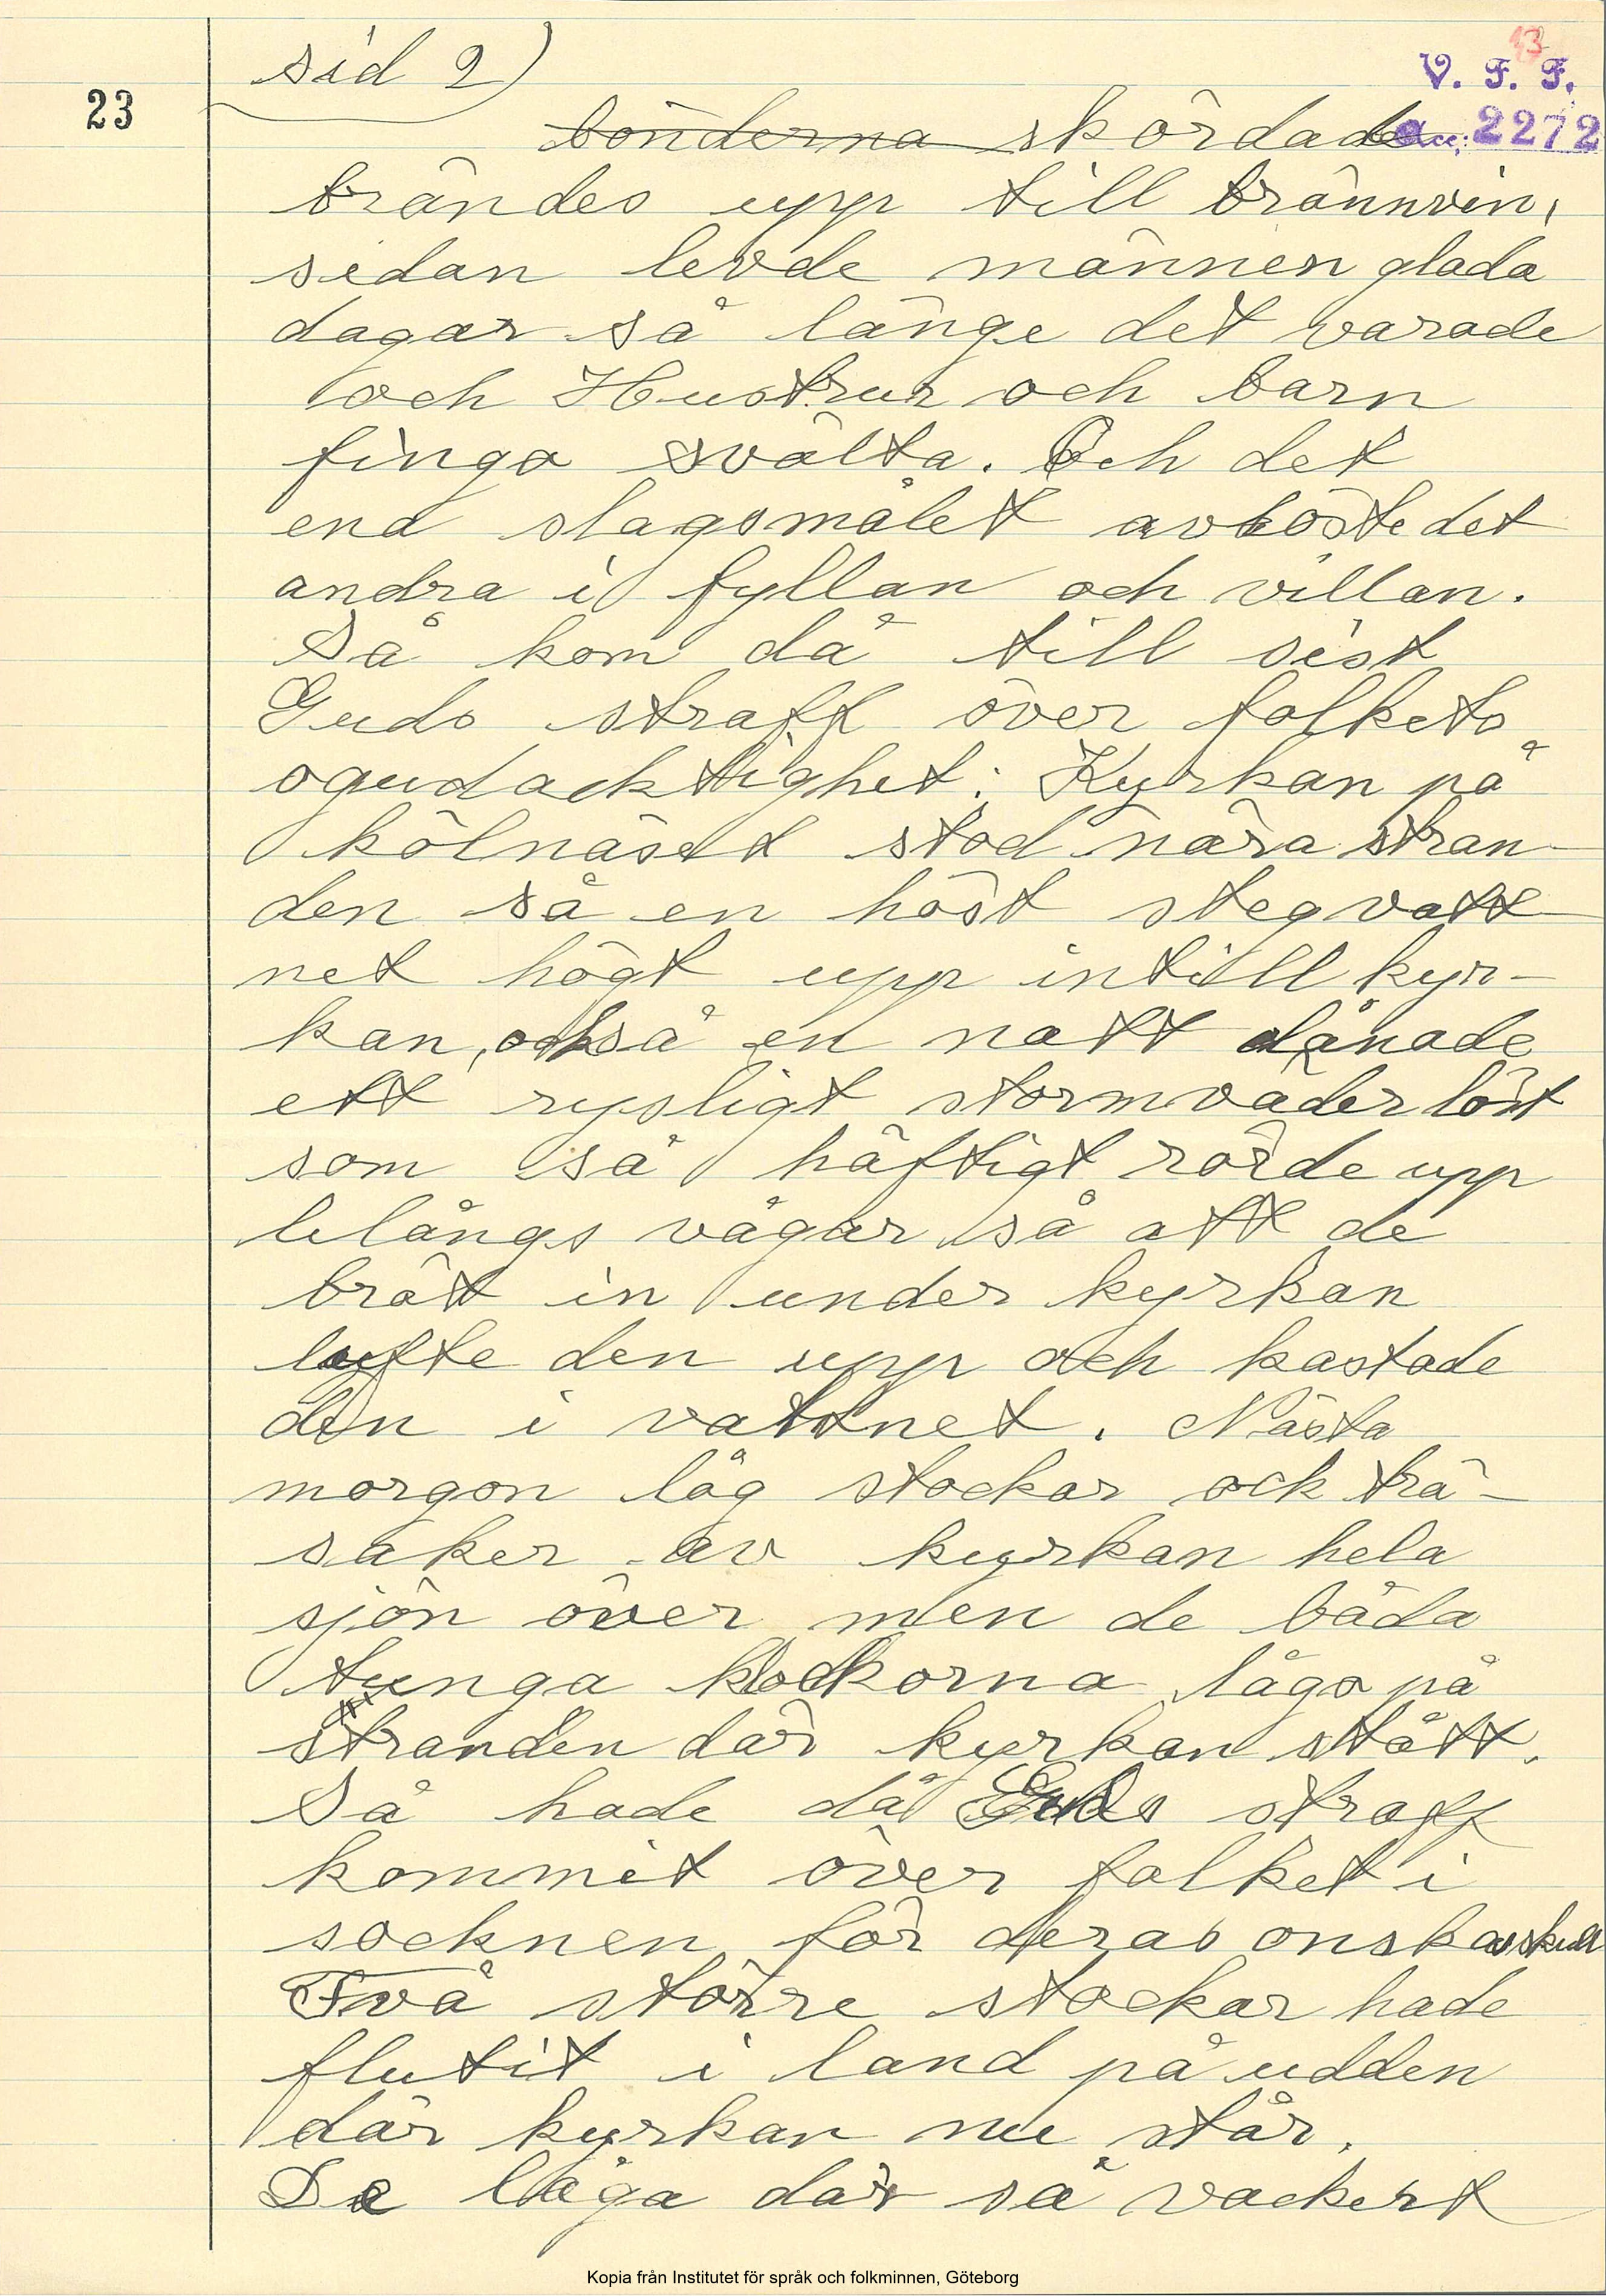 13
sid 2)
V. F. F.
23
bönderna skördade
acc: 2272
brändes upp till brännvin,
sedan levde männen glada
dagar så länge det varade
och Hustrur och barn
fingo svälta. Och det
ena slagsmålet avlöste det
andra i fyllan och villan.
Så kom då till sist
Guds straff över folkets
ogudacktighet: Kyrkan på
kölnäset stod nära stran-
den så en höst steg vatt
net högt upp intill kyr-
kan, också en natt danade
ett rysligt stormväder löst
som så häftigt rörde upp
lelångs vågar så att de
bröt in under kyrkan
lyfte den upp och kastade
den i vattnet. Nästa
morgon låg stockar ock trä-
saker av kyrkan hela
sjön över men de båda
tunga klockorna lågo på
stranden där kyrkan stått.
Så hade då Guds straff
kommit över folket i
socknen för deras onskas skull
Två större stockar hade
flutit i land på udden
där kyrkan nu står.
De låga där så vackert
Kopia från Institutet för språk och folkminnen, Göteborg